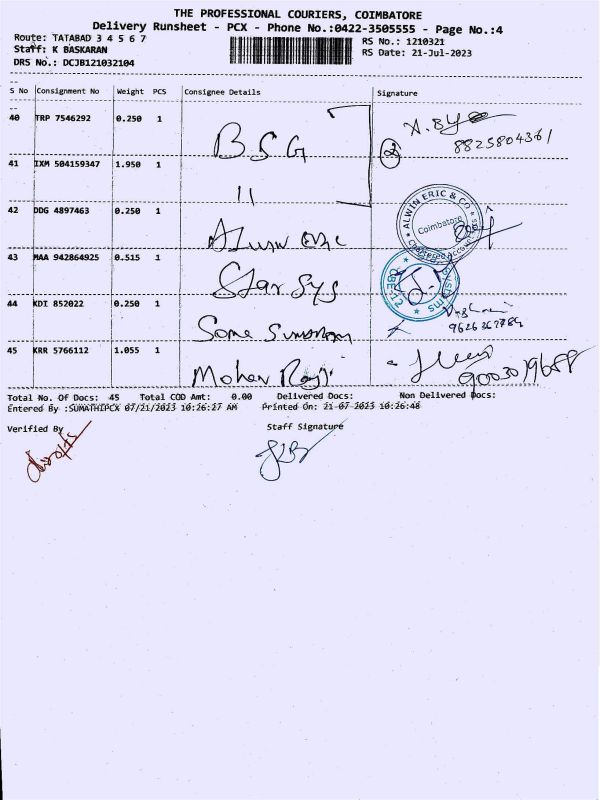 THE PROFESSIONAL COURIERS, COIMBATORE
Delivery Runsheet - PCX - Phone No.:0422-3505555 - Page No.:4
Route: TATABAD 3 4 5 6 7
RS No.: 1210321
Staff: K BASKARAN
RS Date: 21-Jul-2023
DRS No.: DCJB121032104
S No Consignment No Weight PCS Consignee Details Signature
40 TRP 7546292 0.250 1 B S G
8825804361
2
41 IXM 504159347 1.950 1 11
42 DDG 4897463 0.250 1 Alwin Eric
ALWIN ERIC & CO
Coimbatore
CHARTERED ACCOUNTANTS
43 MAA 942864925 0.515 1 Star Sys
CBE-12
44 KDI 852022 0.250 1 Soma Sundram
45 KRR 5766112 1.055 1 Mohan Raj
9003019688
Total No. Of Docs: 45 Total COD Amt: 0.00 Delivered Docs: Non Delivered Docs:
Entered By :SUMATHIPCX 07/21/2023 10:26:27 AM Printed On: 21-07-2023 10:26:48
Verified By Staff Signature